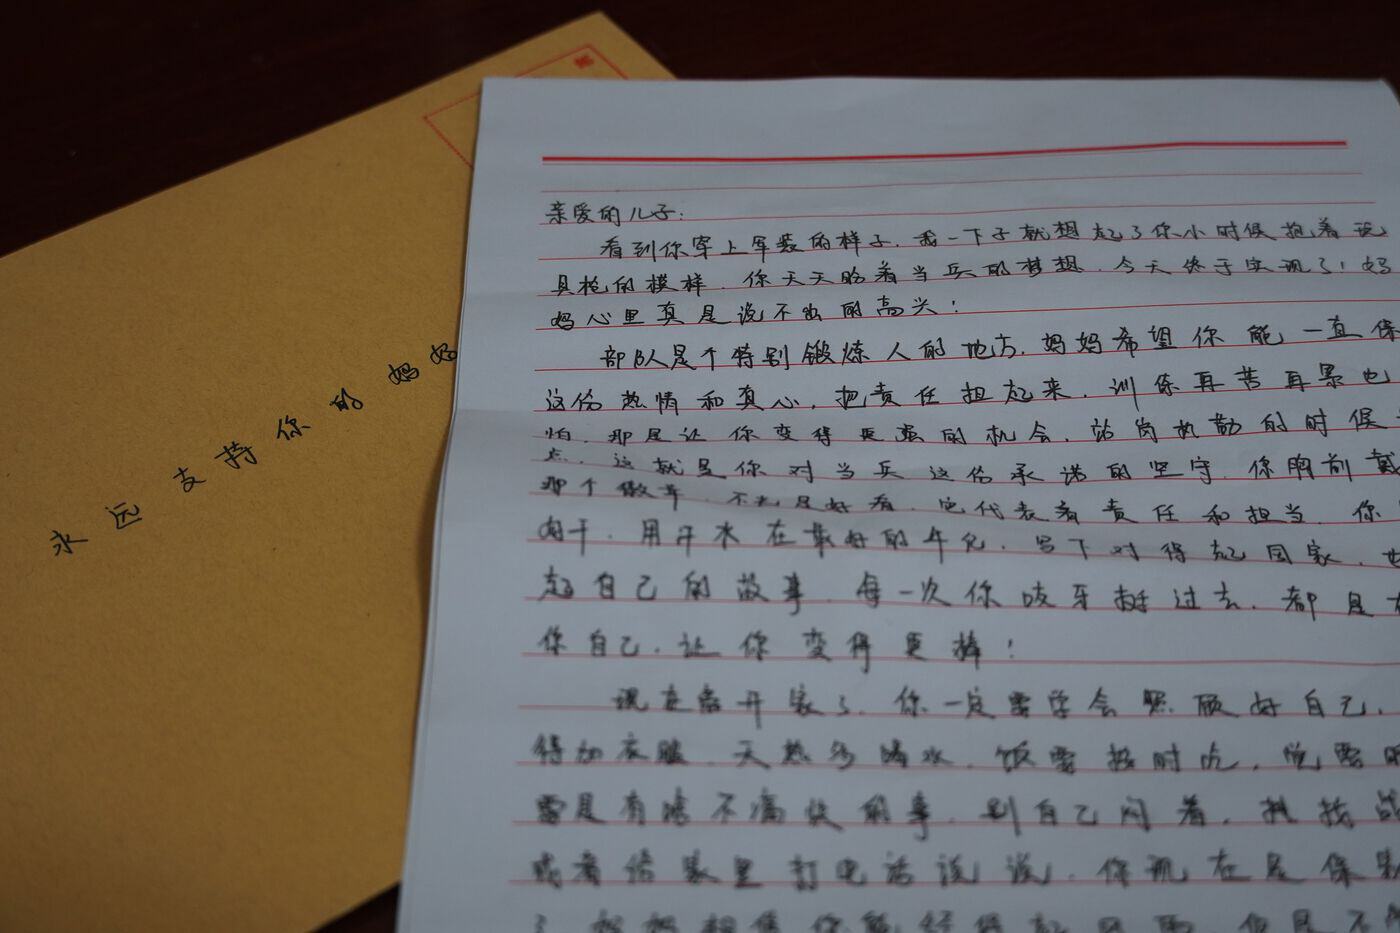 永远支持你的妈妈
亲爱的儿子:
看到你穿上军装的样子,我一下子就想起了你小时候抱着玩
具枪的模样,你天天盼着当兵的梦想,今天终于实现了!妈
妈心里真是说不出的高兴!
部队是个特别锻炼人的地方,妈妈希望你能一直保
这份热情和真心,把责任担起来,训练再苦再累也
怕,那是让你变得更强的机会,站岗执勤的时候
点,这就是你对当兵这份承诺的坚守,你胸前戴
那个徽章,不光是好看,它代表着责任和担当,你
肯干,用汗水在最好的年纪,写下对得起国家,也
起自己的故事,每一次你咬牙挺过去,都是在
你自己,让你变得更棒!
现在离开家了,你一定要学会照顾好自己,
得加衣服,天热多喝水,饭要按时吃,觉要
要是有啥不痛快的事,别自己闷着,找找战
或者给家里打电话说说,你现在是保家
了,妈妈相信你能经得起风雨,但是不